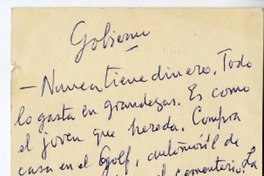 Gobierno
- Nunca tiene dinero. Todo
lo gasta en grandezas. Es como
el joven que hereda. Compra
casa en el Golf, automóvil de
el cementerio. La